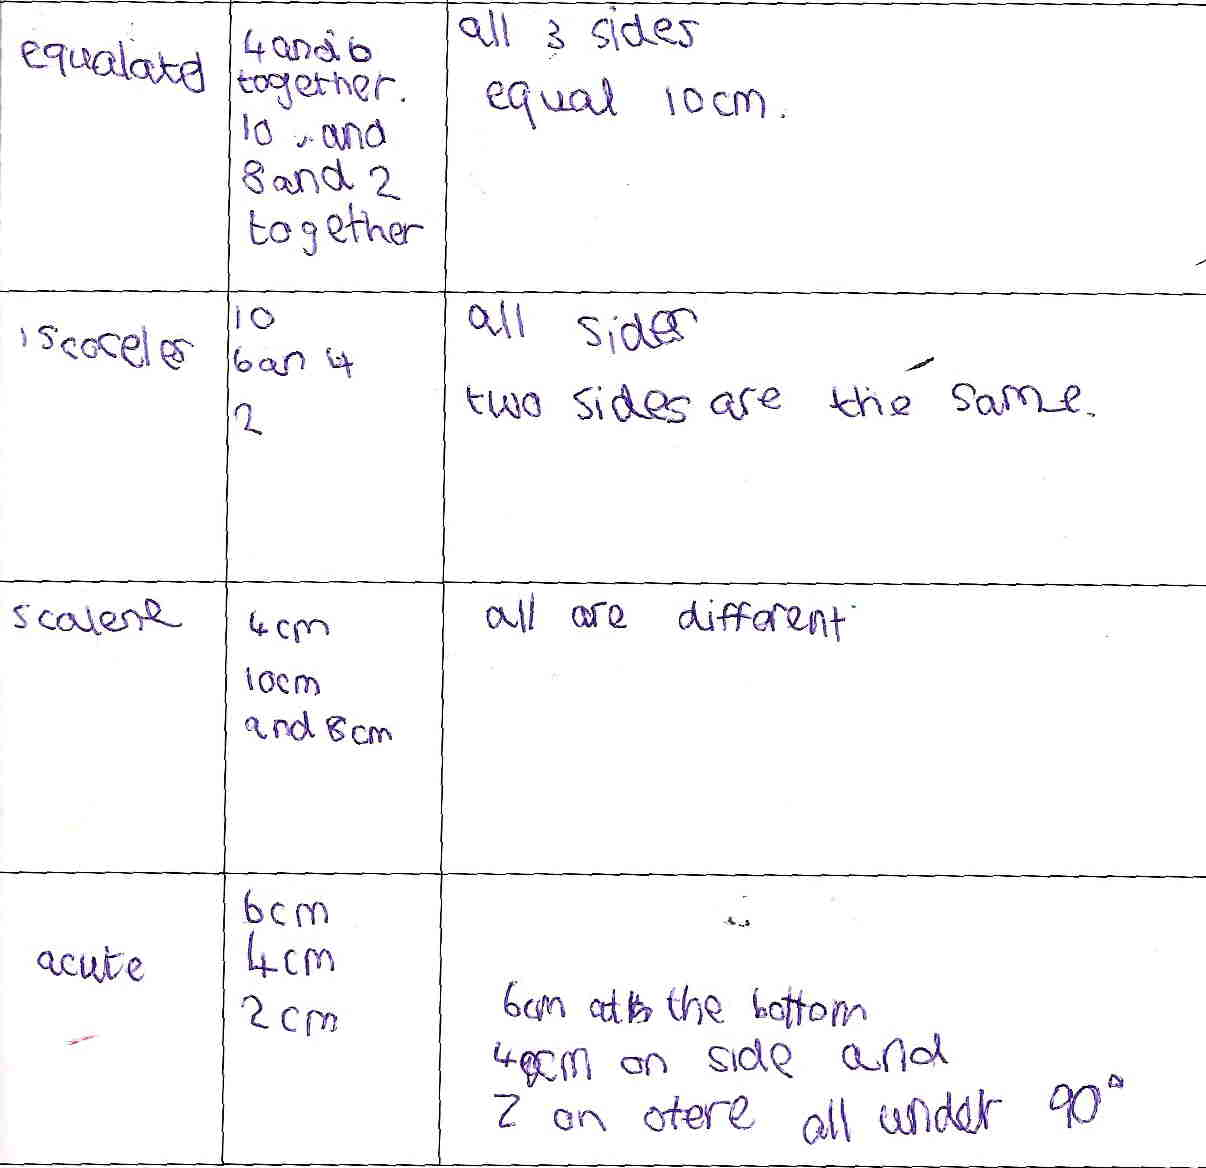 equalate
4 and 6
together.
10 and
8 and 2
together
all 3 sides
equal 10cm.
iscoceles
10
6an 4
2
all sides
two sides are the same.
scalene
4cm
10cm
and 8cm
all are different
acute
6cm
4cm
2cm
6cm the bottom
4cm on side and
2 on otere all under 90°